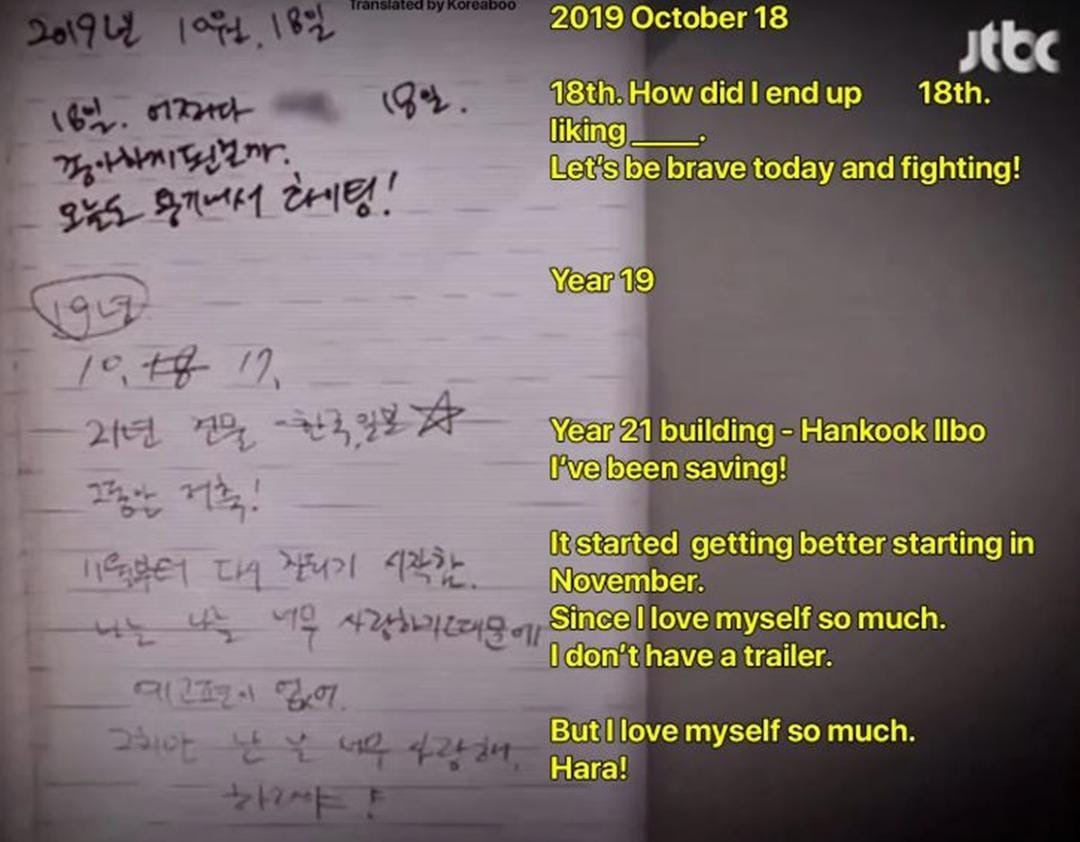 Translated by Koreaboo
2019년 10월. 18일
2019 October 18
jtbc
18일. 어쩌다 18일.
18th. How did I end up 18th.
좋아하게된걸까.
liking ____.
오늘도 용기내서 화이팅!
Let's be brave today and fighting!
19년
Year 19
10, 18 17,
21년 건물 - 한국,일본 ☆
Year 21 building - Hankook Ilbo
그동안 저축!
I've been saving!
11월부터 다시 잘되기 시작함.
It started getting better starting in
November.
나는 나를 너무 사랑하기때문에
Since I love myself so much.
I don't have a trailer.
없어.
그치만 난 날 너무 사랑해,
But I love myself so much.
하라야!
Hara!